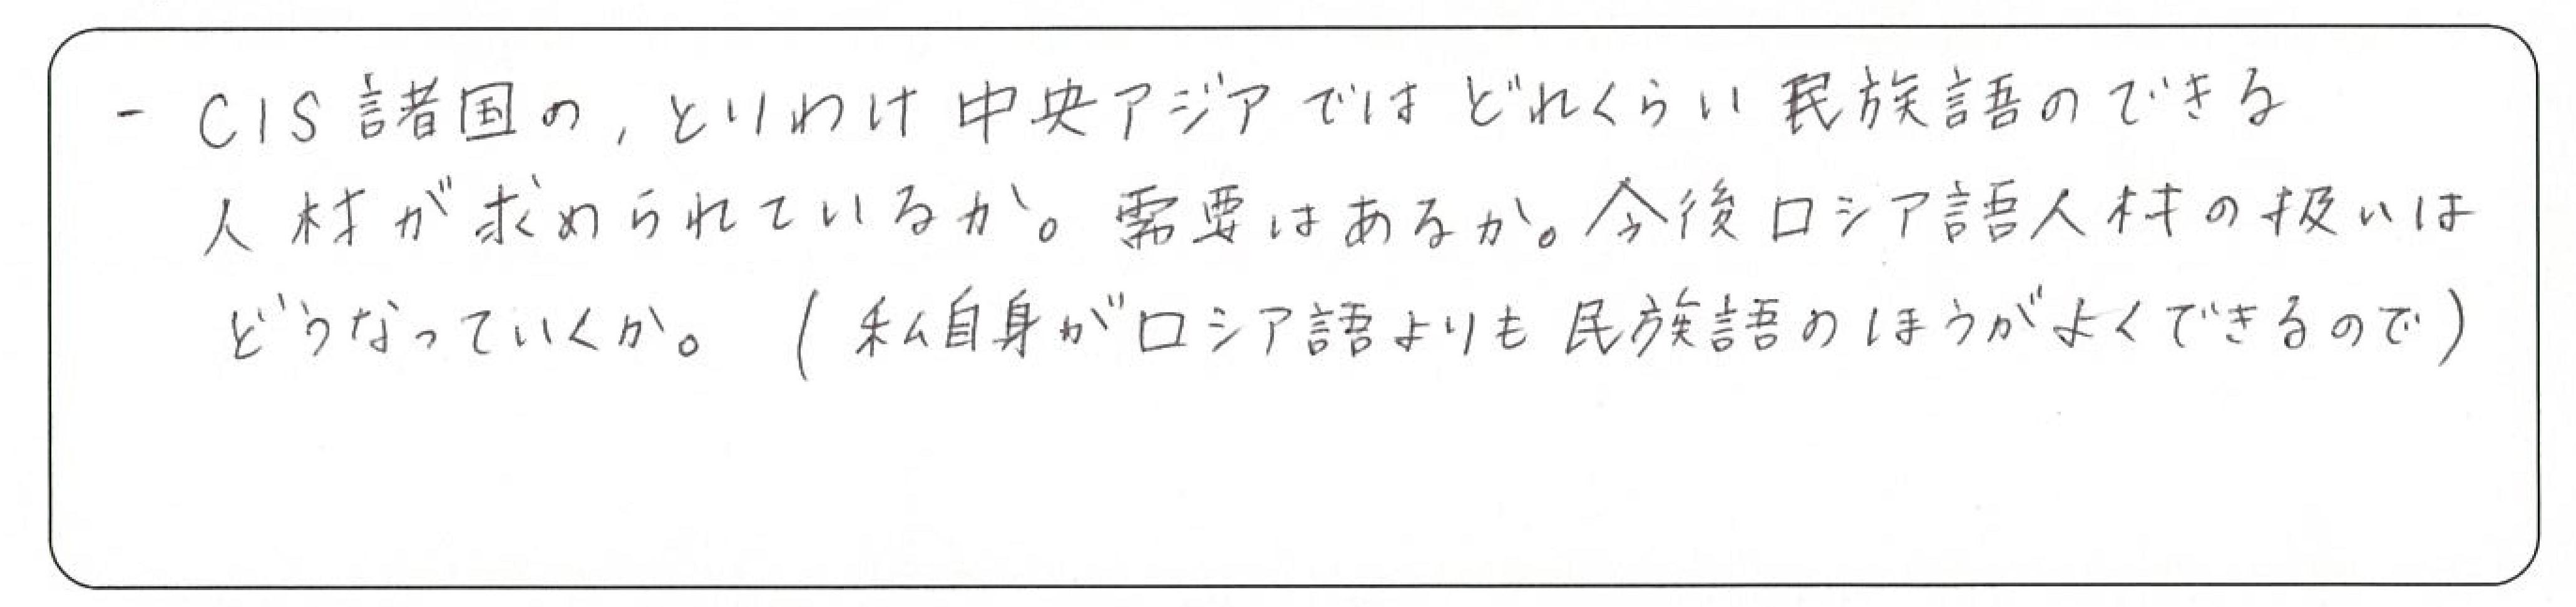 - CIS諸国の, とりわけ中央アジアではどれくらい民族語のできる
人材が求められているか。需要はあるか。今後ロシア語人材の扱いは
どうなっていくか。 (私自身がロシア語よりも民族語のほうがよくできるので)